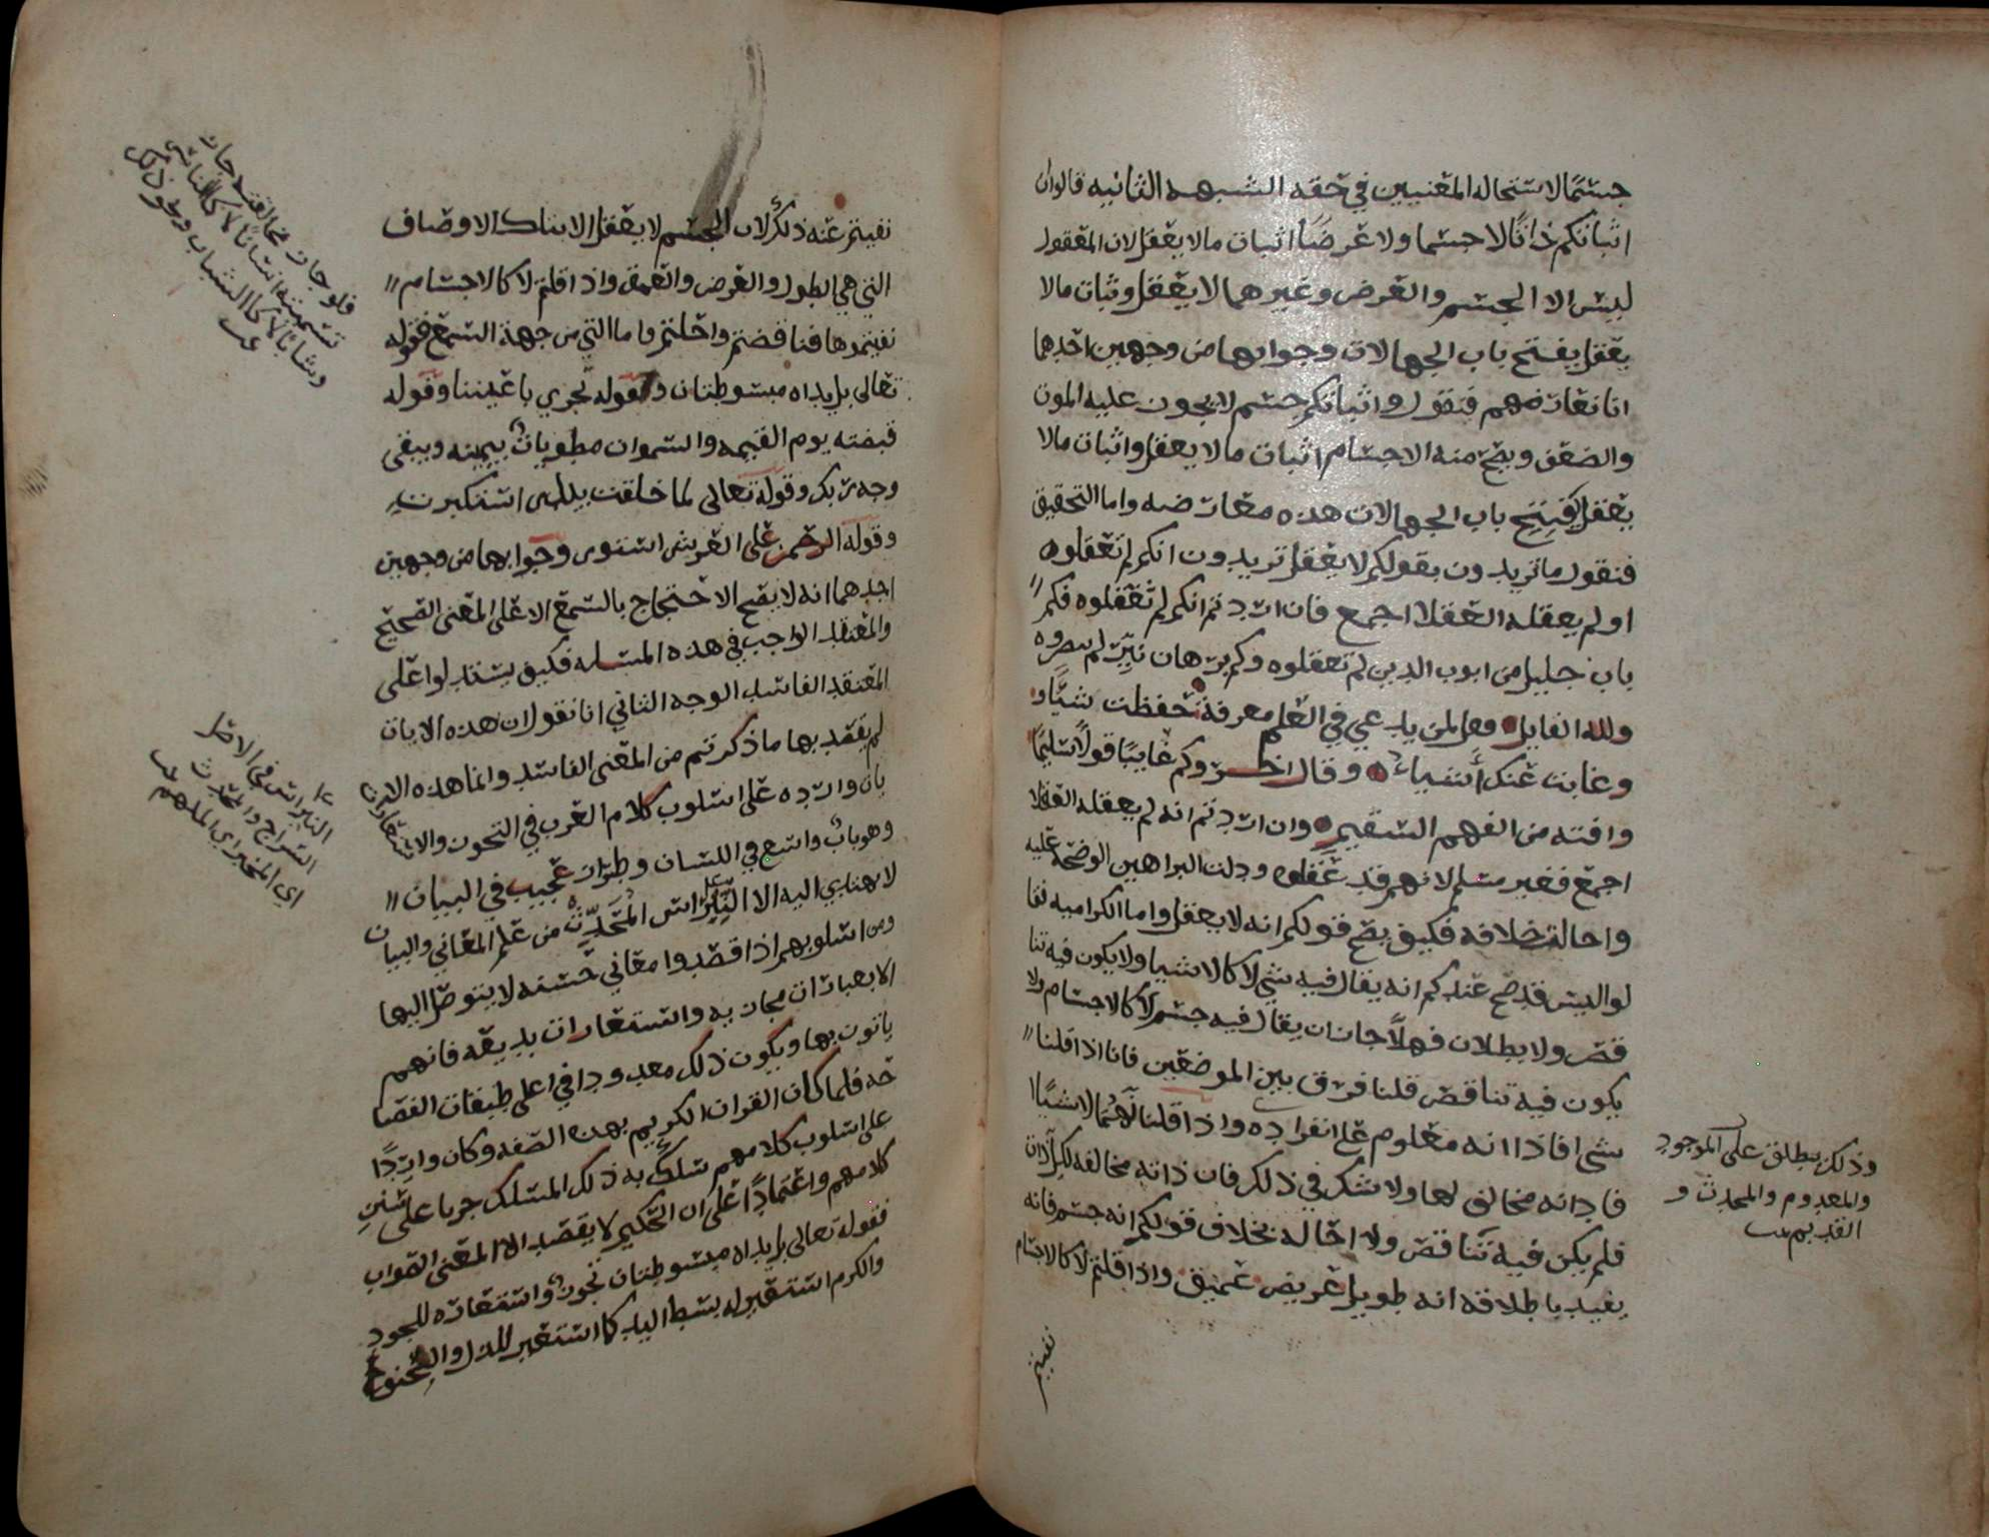 جسمًا لاستحاله المعنيين في حقه الشبهه الثانيه قالوا ان
اثباتكم ذاتًا لا جسما ولا عرضًا اثبات ما لا يعقل لان المعقول
ليس الا الجسم والعرض وغيرهما لا يعقل وثبات ما لا
يعقل يفتح باب الجهالات وجوابها من وجهين احدهما
انا نعارضهم فنقول واثباتكم جسم لا يجوز عليه الموت
والضعف ويصح منه الاجسام اثبات ما لا يعقل واثبات ما لا
يعقل يفتح باب الجهالات هذه معارضه واما التحقيق
فنقول ما تريدون بقولكم لا يعقل تريدون انكم لم تعقلوه
او لم يعقله العقلا اجمع فان اردتم انكم لم تعقلوه فكم
باب جليل من ابوب الدين لم تعقلوه وكم برهان نيّر لم تبصروه
ولله القايل وقل لمن يدعي في العلم معرفة حفظت شيًا و
وغابت عنك أشياء وقال اخر وكم عايبًا قولًا سليمًا
وافته من الفهم السقيم وان اردتم انه لم يعقله العقلا
اجمع فغير مسلم لانهم قد عقلوه ودلت البراهين الوضحه عليه
واحالة خلافه فكيف يصح قولكم انه لا يعقل واما الكراميه فقا
لوا اليس قد صح عندكم انه يقال فيه شي لا كالاشيا ولا يكون فيه تنا
قض ولا بطلان فهلًا جاز ان يقال فيه جسم لا كالاجسام ولا
يكون فيه تناقض قلنا فرق بين الموضعين فانا اذا قلنا
شي افاد انه معلوم على انفراده واذا قلنا لا كالاشيا
فاد انه مخالف لها ولا شك في ذلك فان ذاته مخالفه لكل ذات
فلم يكن فيه تناقض ولا احاله بخلاف قولكم انه جسم فانه
يفيد باطلاقه انه طويل عريض عميق واذا قلتم لا كالاجسام
نفيتم
وذلك يطلق على الموجود
والمعدوم والمحدث و
القديم تمت
نفيتم عنه ذلك لان الجسم لا يعقل الا بتلك الاوصاف
التي هي الطول والعرض والعمق واذا قلتم لا كالاجسام
نفيتموها فناقضتم واحلتم واما التي من جهة السمع فقوله
تعالى بل يداه مبسوطتان وقوله تجري باعيننا وقوله
قبضته يوم القيمه والسموات مطويات بيمينه ويبقى
وجه ربك وقوله تعالى لما خلقت بيدي استكبرت
وقوله الرحمن على العرش استوى وجوابها من وجهين
احدهما انه لا يصح الاحتجاج بالسمع الا على المعنى الصحيح
والمعتقد الواجب في هذه المسله فكيف يستدلوا على
المعتقد الفاسد الوجه الثاني انا نقول ان هذه الايات
لم يقصد بها ما ذكرتم من المعنى الفاسد وانما هذه الايات
بان وارده على اسلوب كلام العرب في التجوز والاستعارة
وهو بابٌ واسع في اللسان وطراز عجيب في البيان
لا يهتدي اليه الا النبراس المحدث من علم المعاني والبيان
ومن اسلوبهم اذا قصدوا معاني حسنه لا يتوصل اليها
الا بعبارات مجازيه واستعارات بديعه فانهم
ياتون بها ويكون ذلك معدودا في اعلى طبقات الفصا
حه فلما كان القران الكريم بهذه الصفه وكان واردًا
على اسلوب كلامهم سلك به ذلك المسلك جريا على سنن
كلامهم واعتمادًا على ان الحكيم لا يقصد الا المعنى الصواب
فقوله تعالى بل يداه مبسوطتان تجوز واستعاره للجود
والكرم استعير له بسط اليد كما استعير للذل والخنوع
فلو جاز مخالفته جاز
تسميته انسانًا لا كالناس
وشابًا لا كالشباب ونحو ذلك
تمت
النبراس في الاصل
السراج والمحدث
اي المخبر اي الملهم تمت